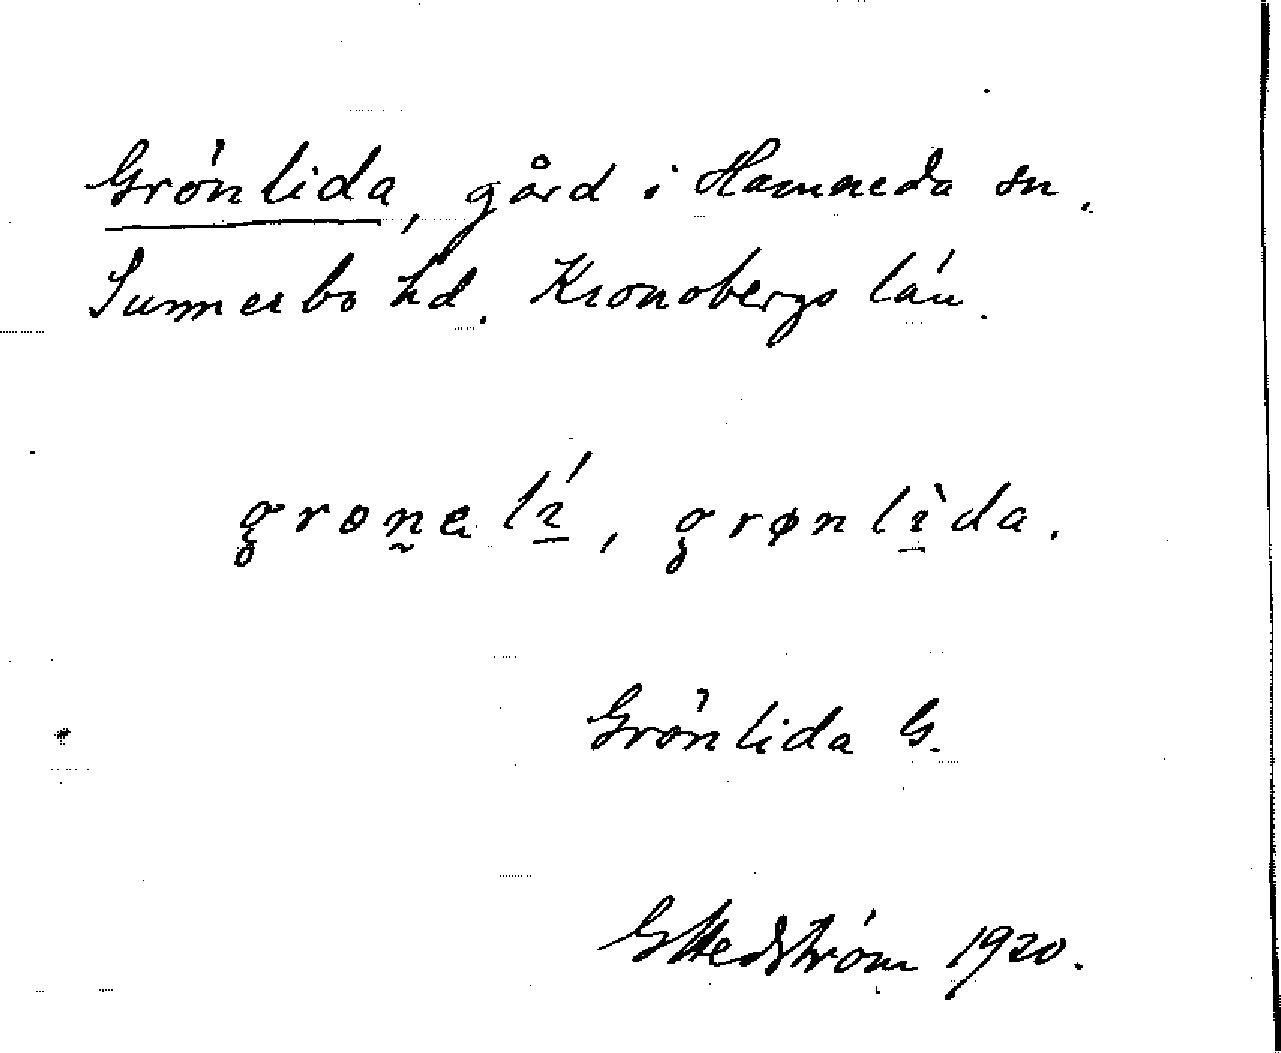 Grönlida, gård i Hamneda sn.
Sunnerbo hd. Kronobergs län.
grønə lí, grønlìda.
Grönlida G.
G Hedström 1920.